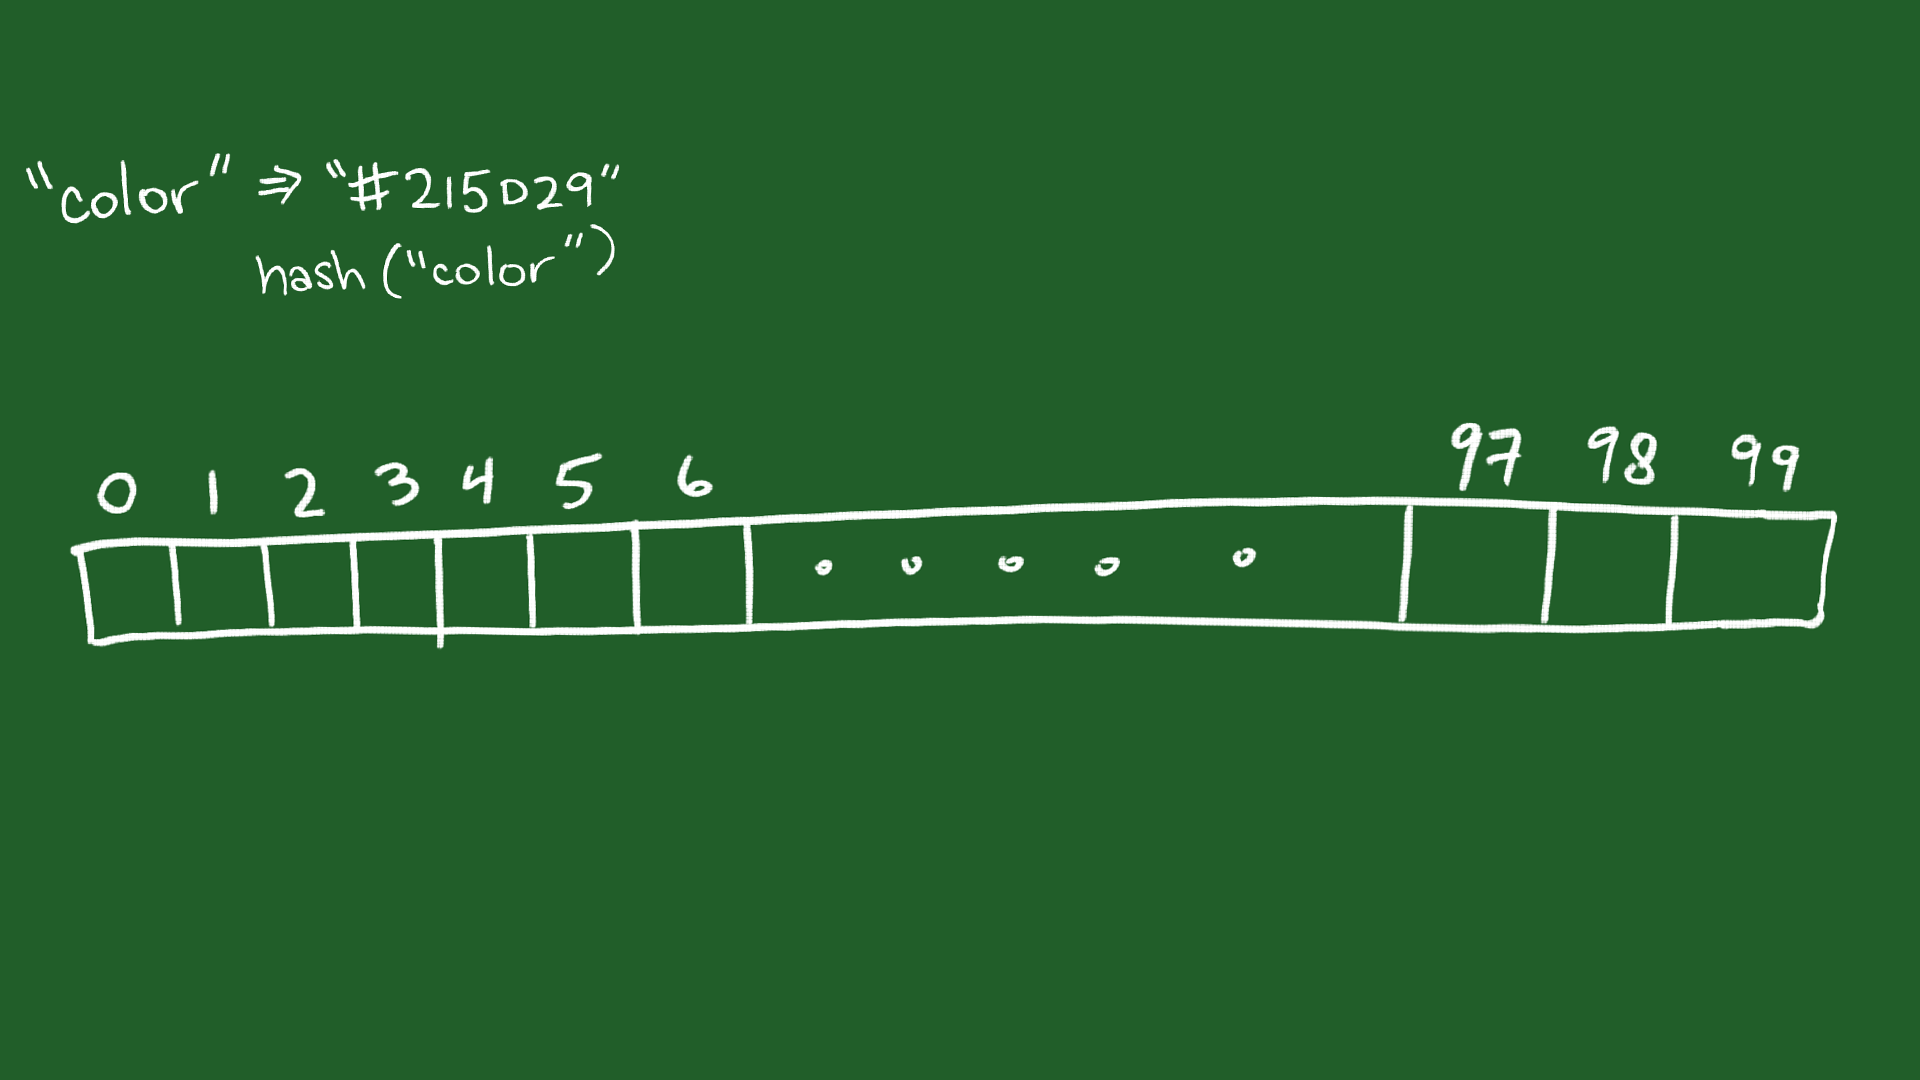 "color" ⇒ "#215D29"
hash ("color")
0 1 2 3 4 5 6 97 98 99